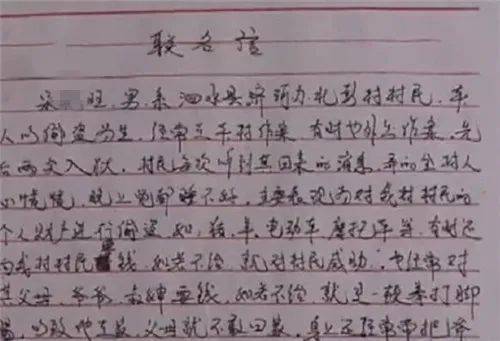 联名信
旺,男,系泗水县济河办 村村民,本
人以偷盗为生,经常在平村作案,有时也外出作案,先
后两次入狱,村民每次听到其回来的消息,弄的全村人
心慌慌,晚上觉都睡不好,主要表现为对我村村民的
个人财产进行偷盗,如:猪、羊、电动车、摩托车等,有时还
向我村村民 钱,如若不给,就对村民威胁,也经常对
其父母、爷爷、 要钱,如若不给,就是一顿拳打脚
踢,以致他在家,父母就不敢回家,身上还经常带把